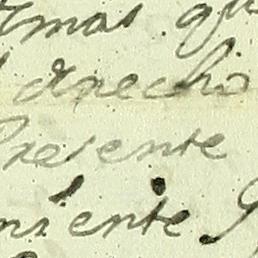 armas. qu
derecho
Presente
niente